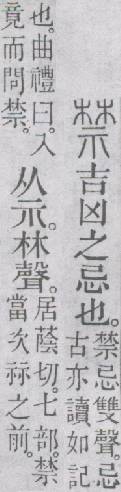 禁吉凶之忌也。
禁忌雙聲。忌
古亦讀如記
也。曲禮曰。入
竟而問禁。
从示。林聲。
居蔭切。七部。禁
當次祘之前。